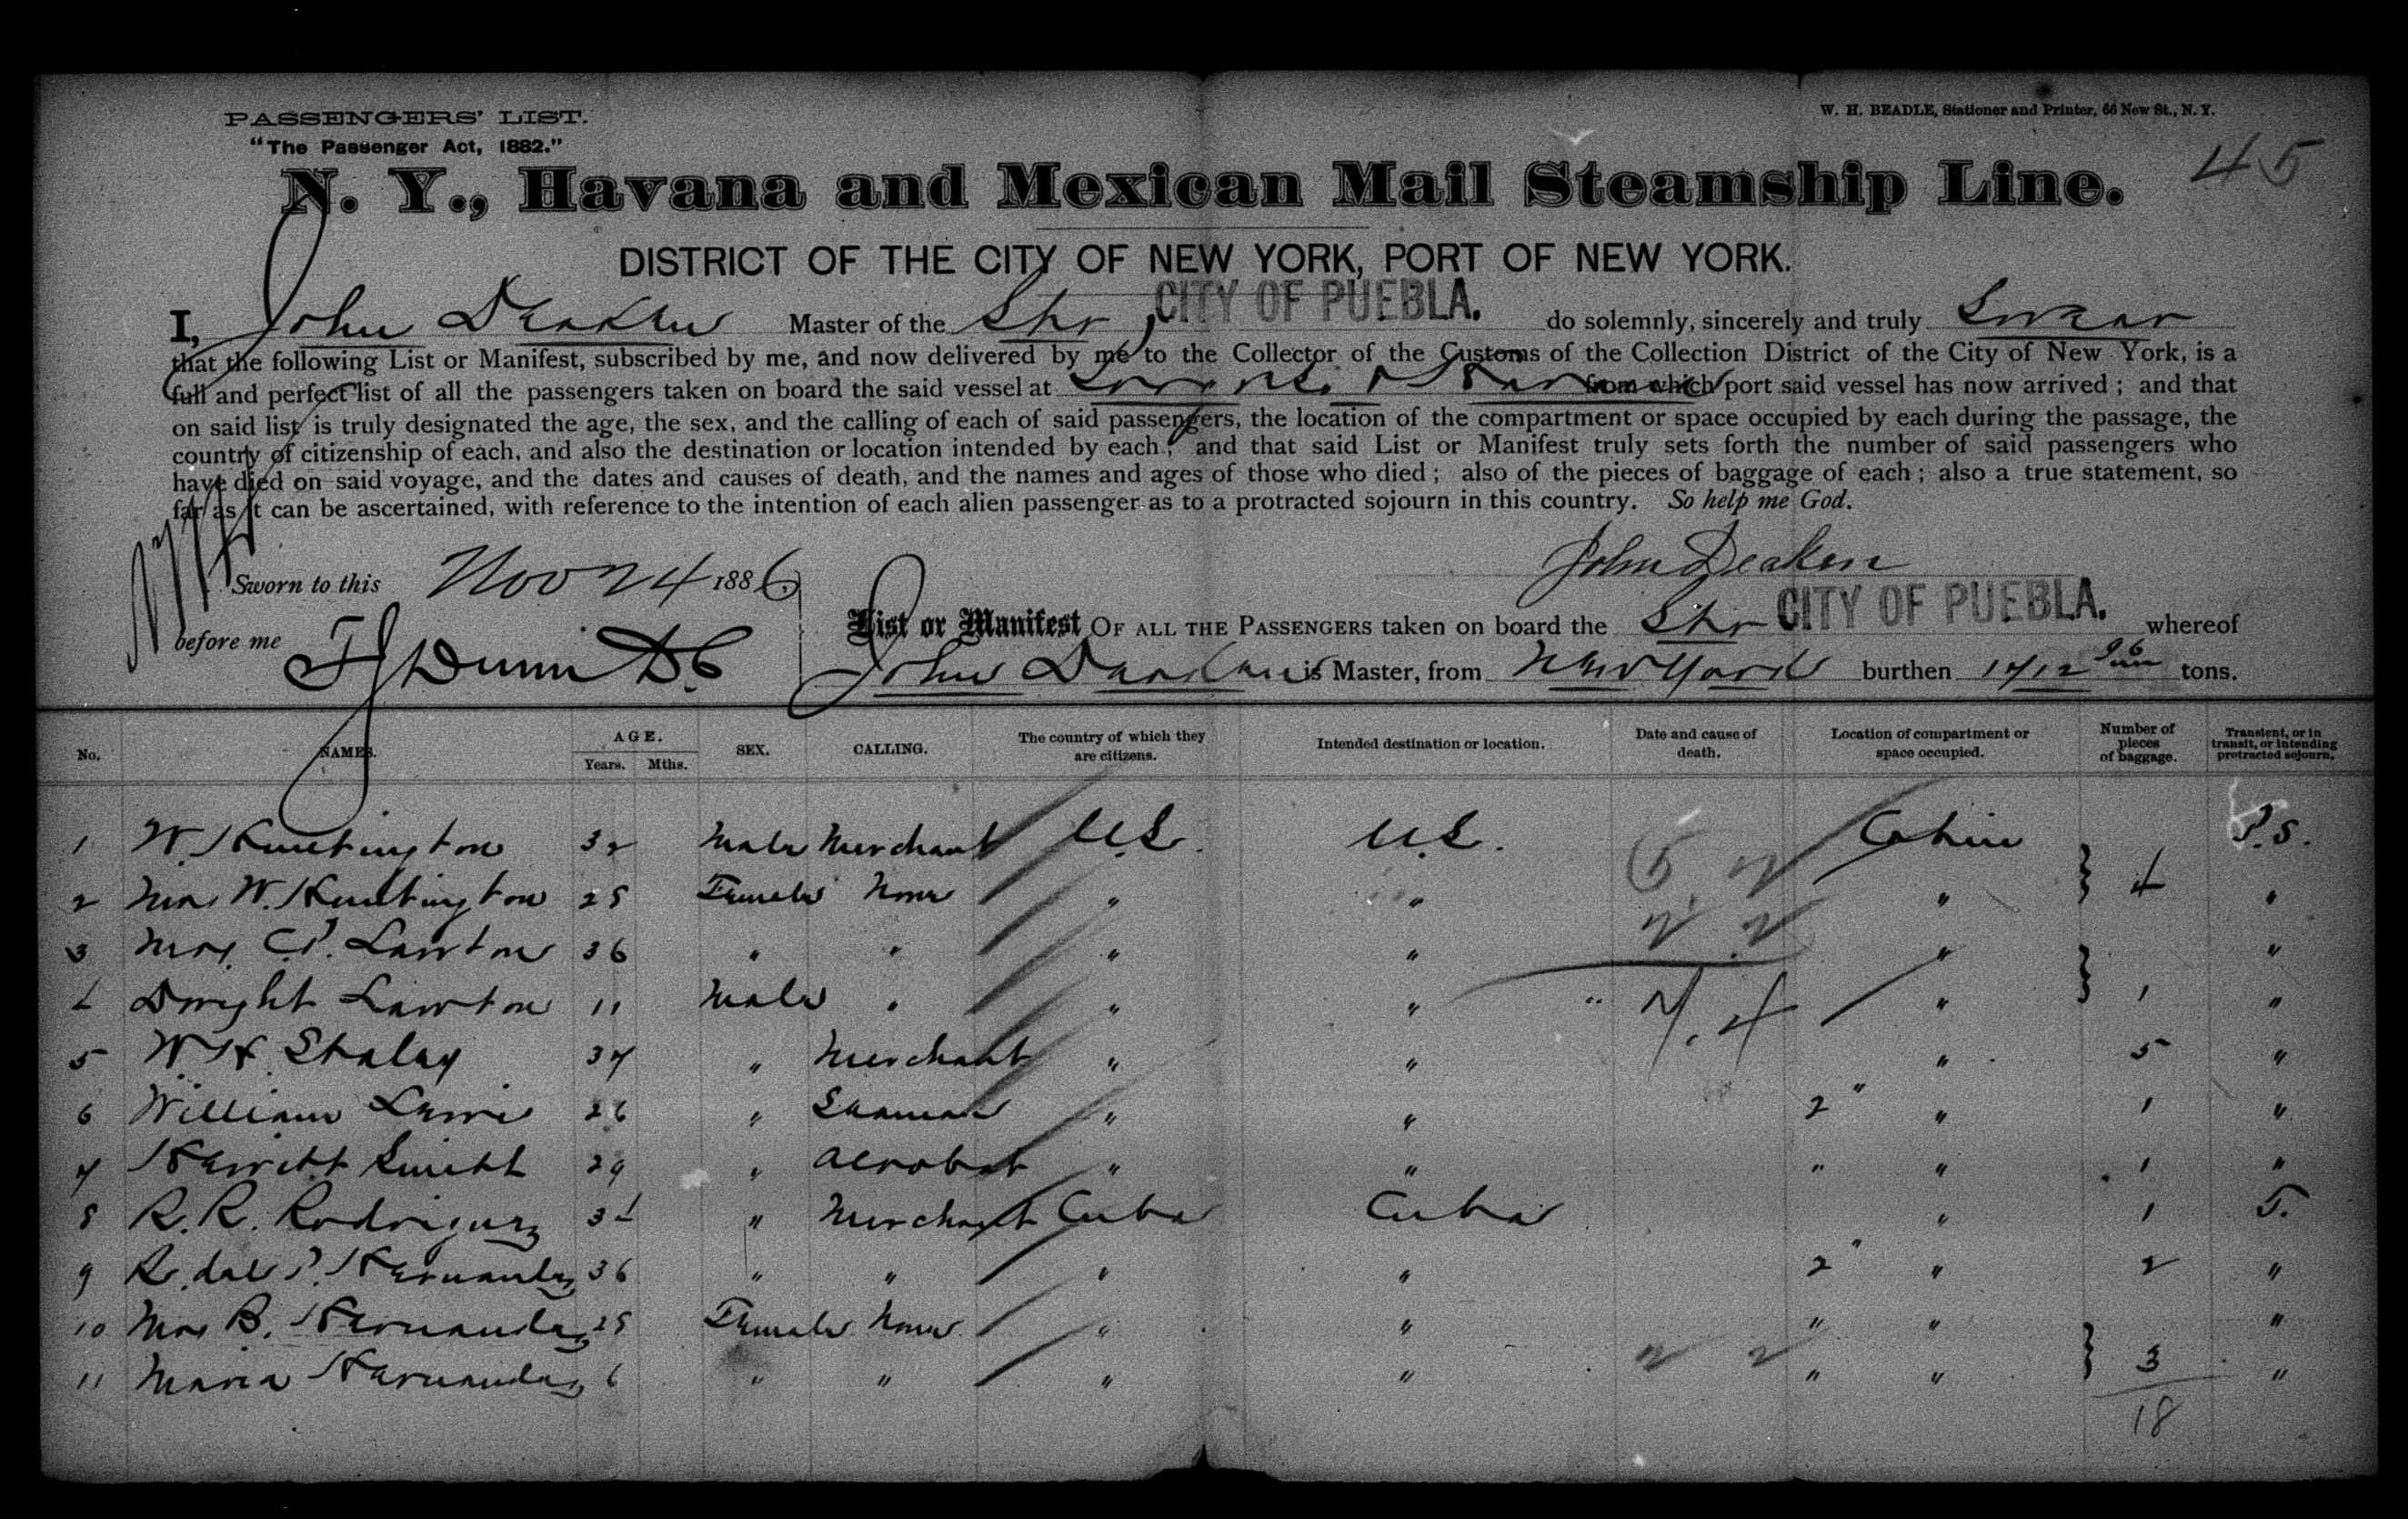 PASSENGERS' LIST.
W. H. BEADLE, Stationer and Printer, 66 New St., N. Y.
"The Passenger Act, 1882."
45
N. Y., Havana and Mexican Mail Steamship Line.
DISTRICT OF THE CITY OF NEW YORK, PORT OF NEW YORK.
I, John Deaken Master of the Str CITY OF PUEBLA. do solemnly, sincerely and truly Swear
that the following List or Manifest, subscribed by me, and now delivered by me to the Collector of the Customs of the Collection District of the City of New York, is a
full and perfect list of all the passengers taken on board the said vessel at from which port said vessel has now arrived; and that
on said list is truly designated the age, the sex, and the calling of each of said passengers, the location of the compartment or space occupied by each during the passage, the
country of citizenship of each, and also the destination or location intended by each; and that said List or Manifest truly sets forth the number of said passengers who
have died on said voyage, and the dates and causes of death, and the names and ages of those who died; also of the pieces of baggage of each; also a true statement, so
far as it can be ascertained, with reference to the intention of each alien passenger as to a protracted sojourn in this country. So help me God.
John Deaken
Sworn to this Nov 24 1886
before me T J Dunn D.C
List or Manifest OF ALL THE PASSENGERS taken on board the Str CITY OF PUEBLA. whereof
John Deaken is Master, from New York burthen tons.
No. NAMES. AGE. Years. Mths. SEX. CALLING. The country of which they are citizens. Intended destination or location. Date and cause of death. Location of compartment or space occupied. Number of pieces of baggage. Transient, or in transit, or intending protracted sojourn.
1 W. Huntington 32 Male Merchant U.S. U.S. Cabin P.S.
2 Mrs W. Huntington 25 Female None " " " 4 "
3 Mrs. C.P. Lawton 36 " " " " " "
4 Dwight Lawton 11 Male " " " " 1 "
5 W. H. Staley 37 " Merchant " " " 5 "
6 William 26 " Seaman " " 2" " 1 "
7 Hewitt Smith 29 " Acrobat " " " " 1 "
8 R. R. Rodriguez 34 " Merchant Cuba Cuba " 1 T.
9 R. del P. Hernandez 36 " " " " 2" " 2 "
10 Mrs B. Hernandez 25 Female None " " " " "
11 Maria Hernandez 6 " " " " " " 3 "
18